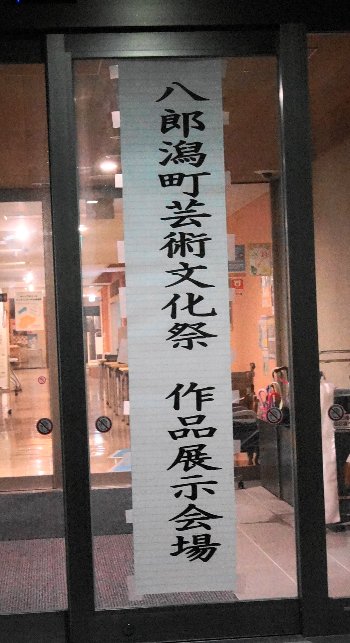 八郎潟町芸術文化祭 作品展示会場